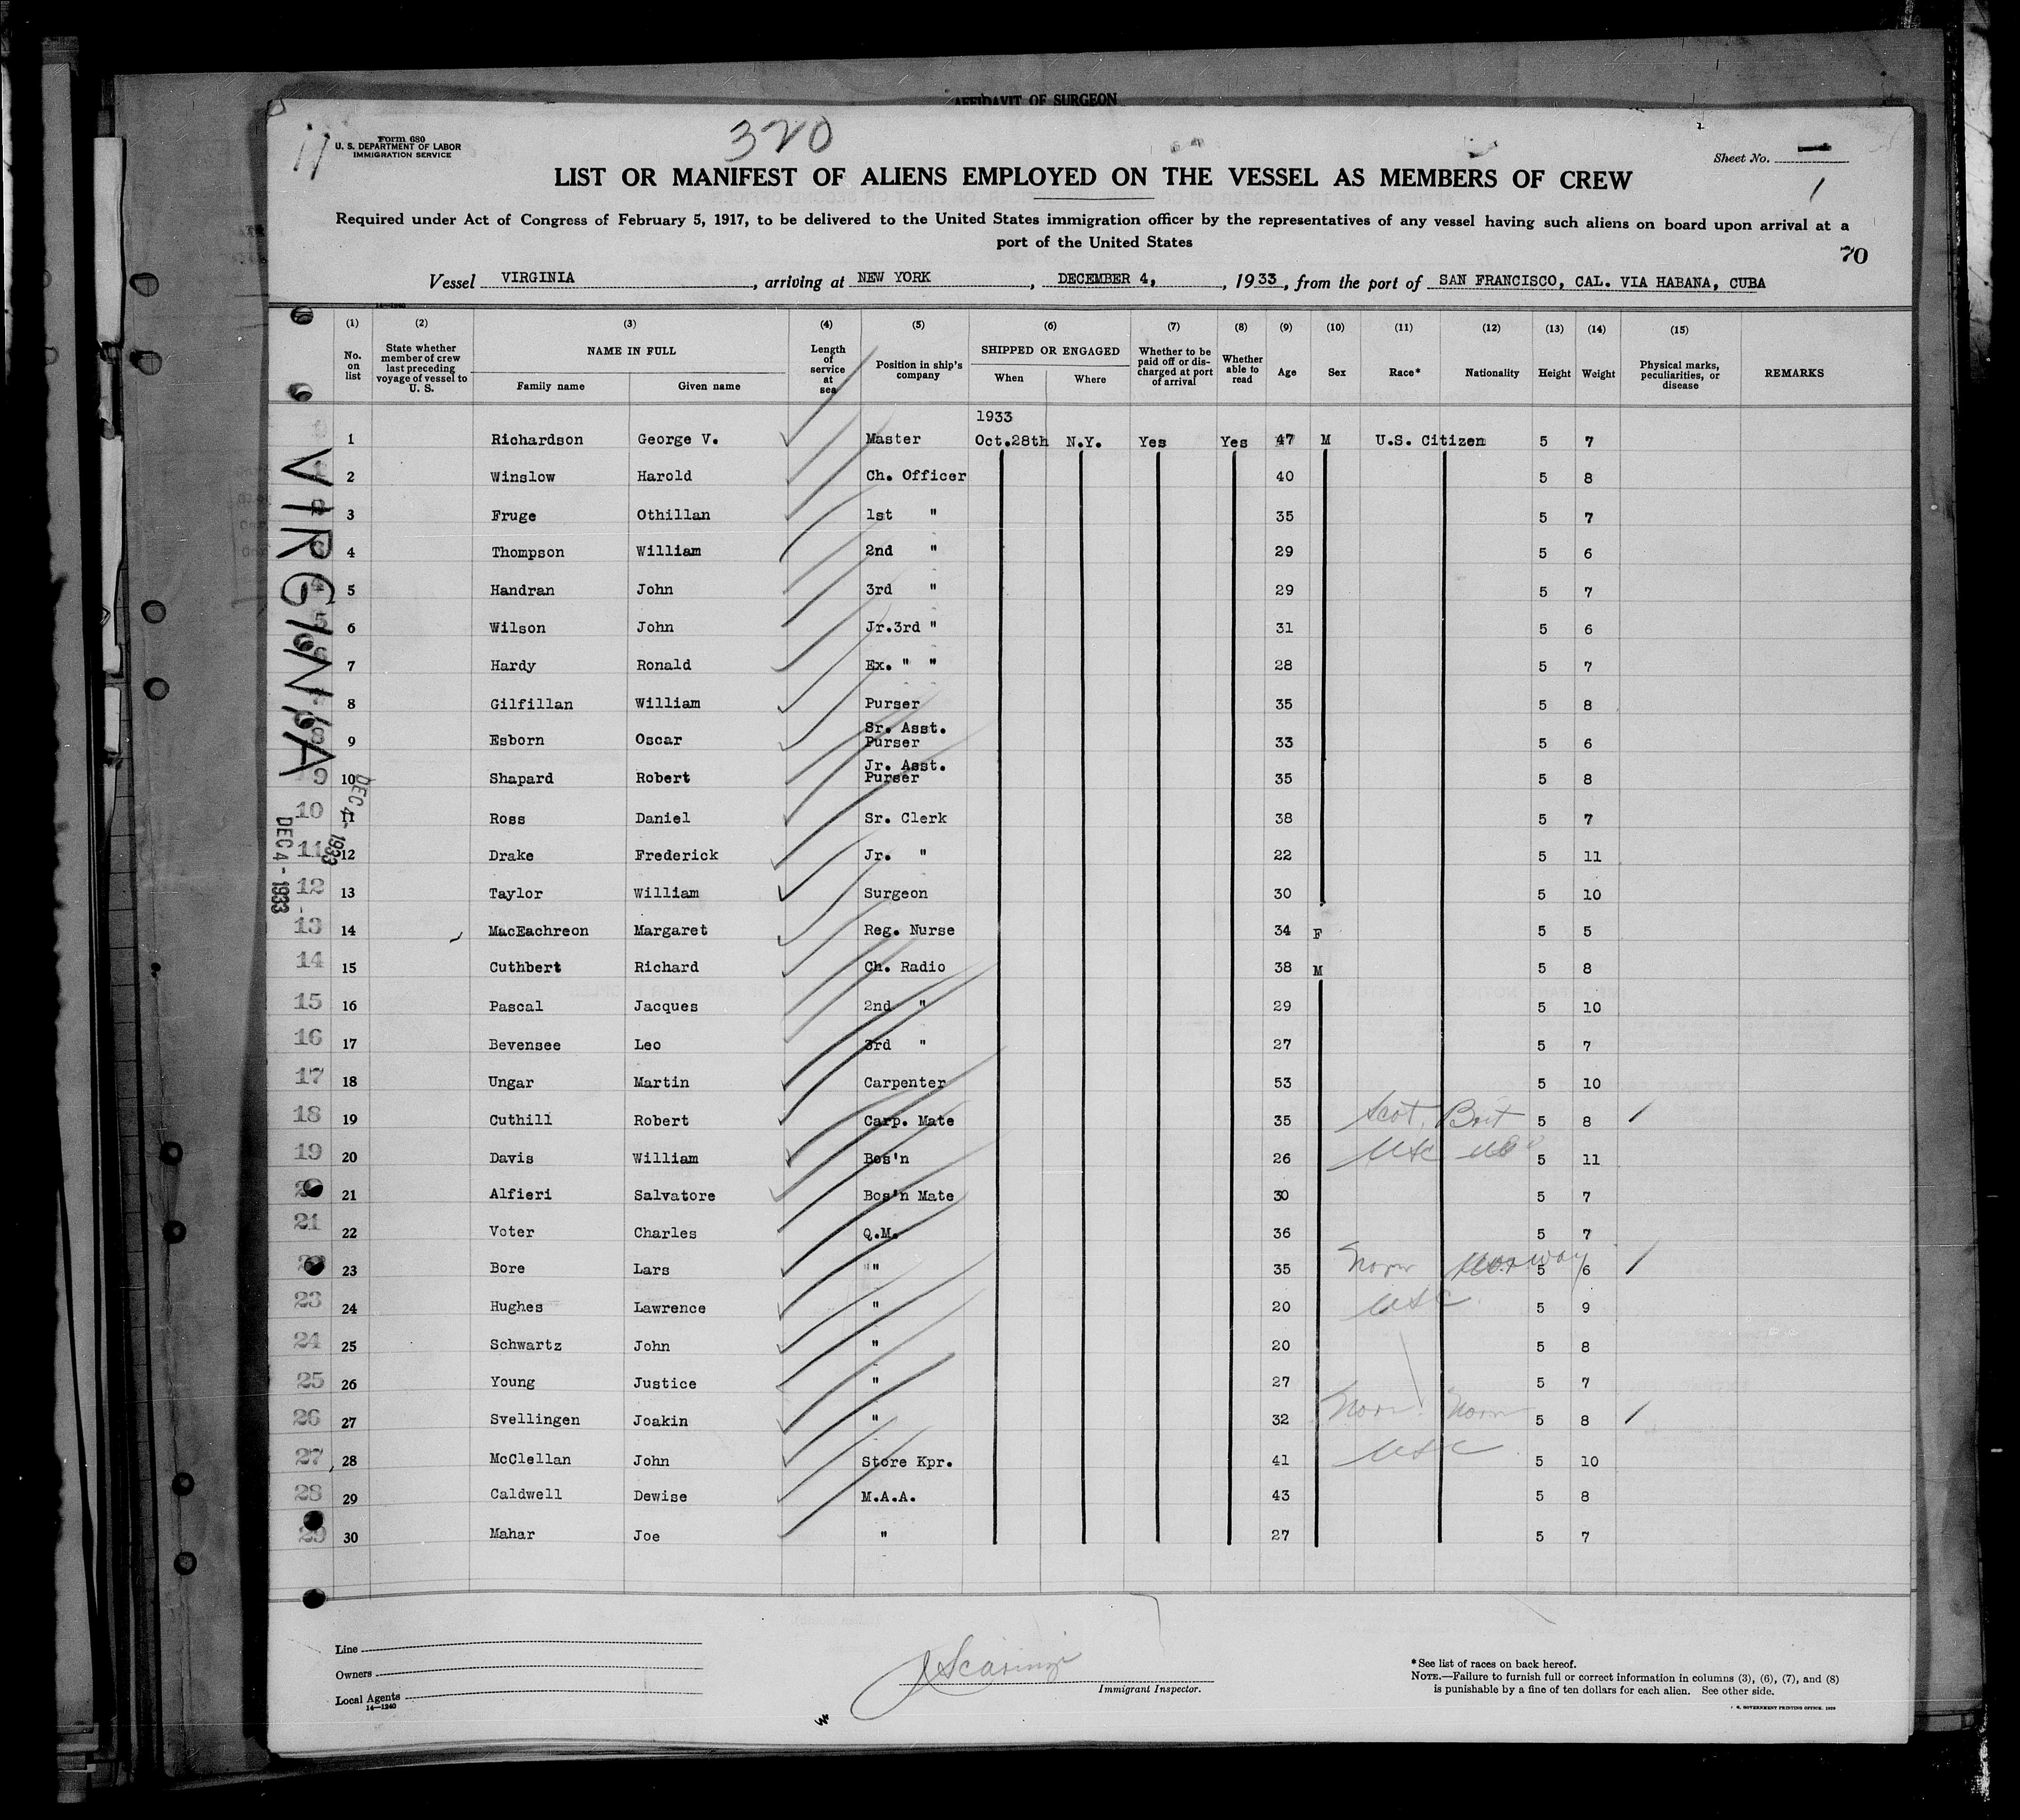 AFFIDAVIT OF SURGEON
11
Form 680
U. S. DEPARTMENT OF LABOR
IMMIGRATION SERVICE
320
Sheet No.
1
LIST OR MANIFEST OF ALIENS EMPLOYED ON THE VESSEL AS MEMBERS OF CREW
Required under Act of Congress of February 5, 1917, to be delivered to the United States immigration officer by the representatives of any vessel having such aliens on board upon arrival at a
port of the United States
70
Vessel VIRGINIA, arriving at NEW YORK, DECEMBER 4, , 1933, from the port of SAN FRANCISCO, CAL. VIA HABANA, CUBA
14—1240
(1) (2) (3) (4) (5) (6) (7) (8) (9) (10) (11) (12) (13) (14) (15)
No. on list State whether member of crew last preceding voyage of vessel to U. S. NAME IN FULL Family name Given name Length of service at sea Position in ship's company SHIPPED OR ENGAGED When Where Whether to be paid off or discharged at port of arrival Whether able to read Age Sex Race* Nationality Height Weight Physical marks, peculiarities, or disease REMARKS
1933
1 Richardson George V. Master Oct.28th N.Y. Yes Yes 47 M U.S. Citizen 5 7
1 2 Winslow Harold Ch. Officer 40 5 8
2 3 Fruge Othillan 1st " 35 5 7
4 Thompson William 2nd " 29 5 6
4 5 Handran John 3rd " 29 5 7
5 6 Wilson John Jr.3rd " 31 5 6
6 7 Hardy Ronald Ex. " " 28 5 7
8 Gilfillan William Purser 35 5 8
8 9 Esborn Oscar Sr. Asst. Purser 33 5 6
9 10 Shapard Robert Jr. Asst. Purser 35 5 8
10 11 Ross Daniel Sr. Clerk 38 5 7
11 12 Drake Frederick Jr. " 22 5 11
12 13 Taylor William Surgeon 30 5 10
13 14 MacEachreon Margaret Reg. Nurse 34 F 5 5
14 15 Cuthbert Richard Ch. Radio 38 M 5 8
15 16 Pascal Jacques 2nd " 29 5 10
16 17 Bevensee Leo 3rd " 27 5 7
17 18 Ungar Martin Carpenter 53 5 10
18 19 Cuthill Robert Carp. Mate 35 Scot. Brit 5 8
19 20 Davis William Bos'n 26 USC 5 11
21 Alfieri Salvatore Bos'n Mate 30 5 7
21 22 Voter Charles Q.M. 36 5 7
23 Bore Lars " 35 Norw Norway 5 6
23 24 Hughes Lawrence " 20 USC 5 9
24 25 Schwartz John " 20 5 8
25 26 Young Justice " 27 5 7
26 27 Svellingen Joakin " 32 Norw Norw 5 8
27 28 McClellan John Store Kpr. 41 USC 5 10
28 29 Caldwell Dewise M.A.A. 43 5 8
29 30 Mahar Joe " 27 5 7
VIRGINIA
DEC 4 - 1933
DEC 4 - 1933
Line
Owners
Local Agents
14—1240
Immigrant Inspector.
*See list of races on back hereof.
NOTE.—Failure to furnish full or correct information in columns (3), (6), (7), and (8)
is punishable by a fine of ten dollars for each alien. See other side.
U. S. GOVERNMENT PRINTING OFFICE: 1929